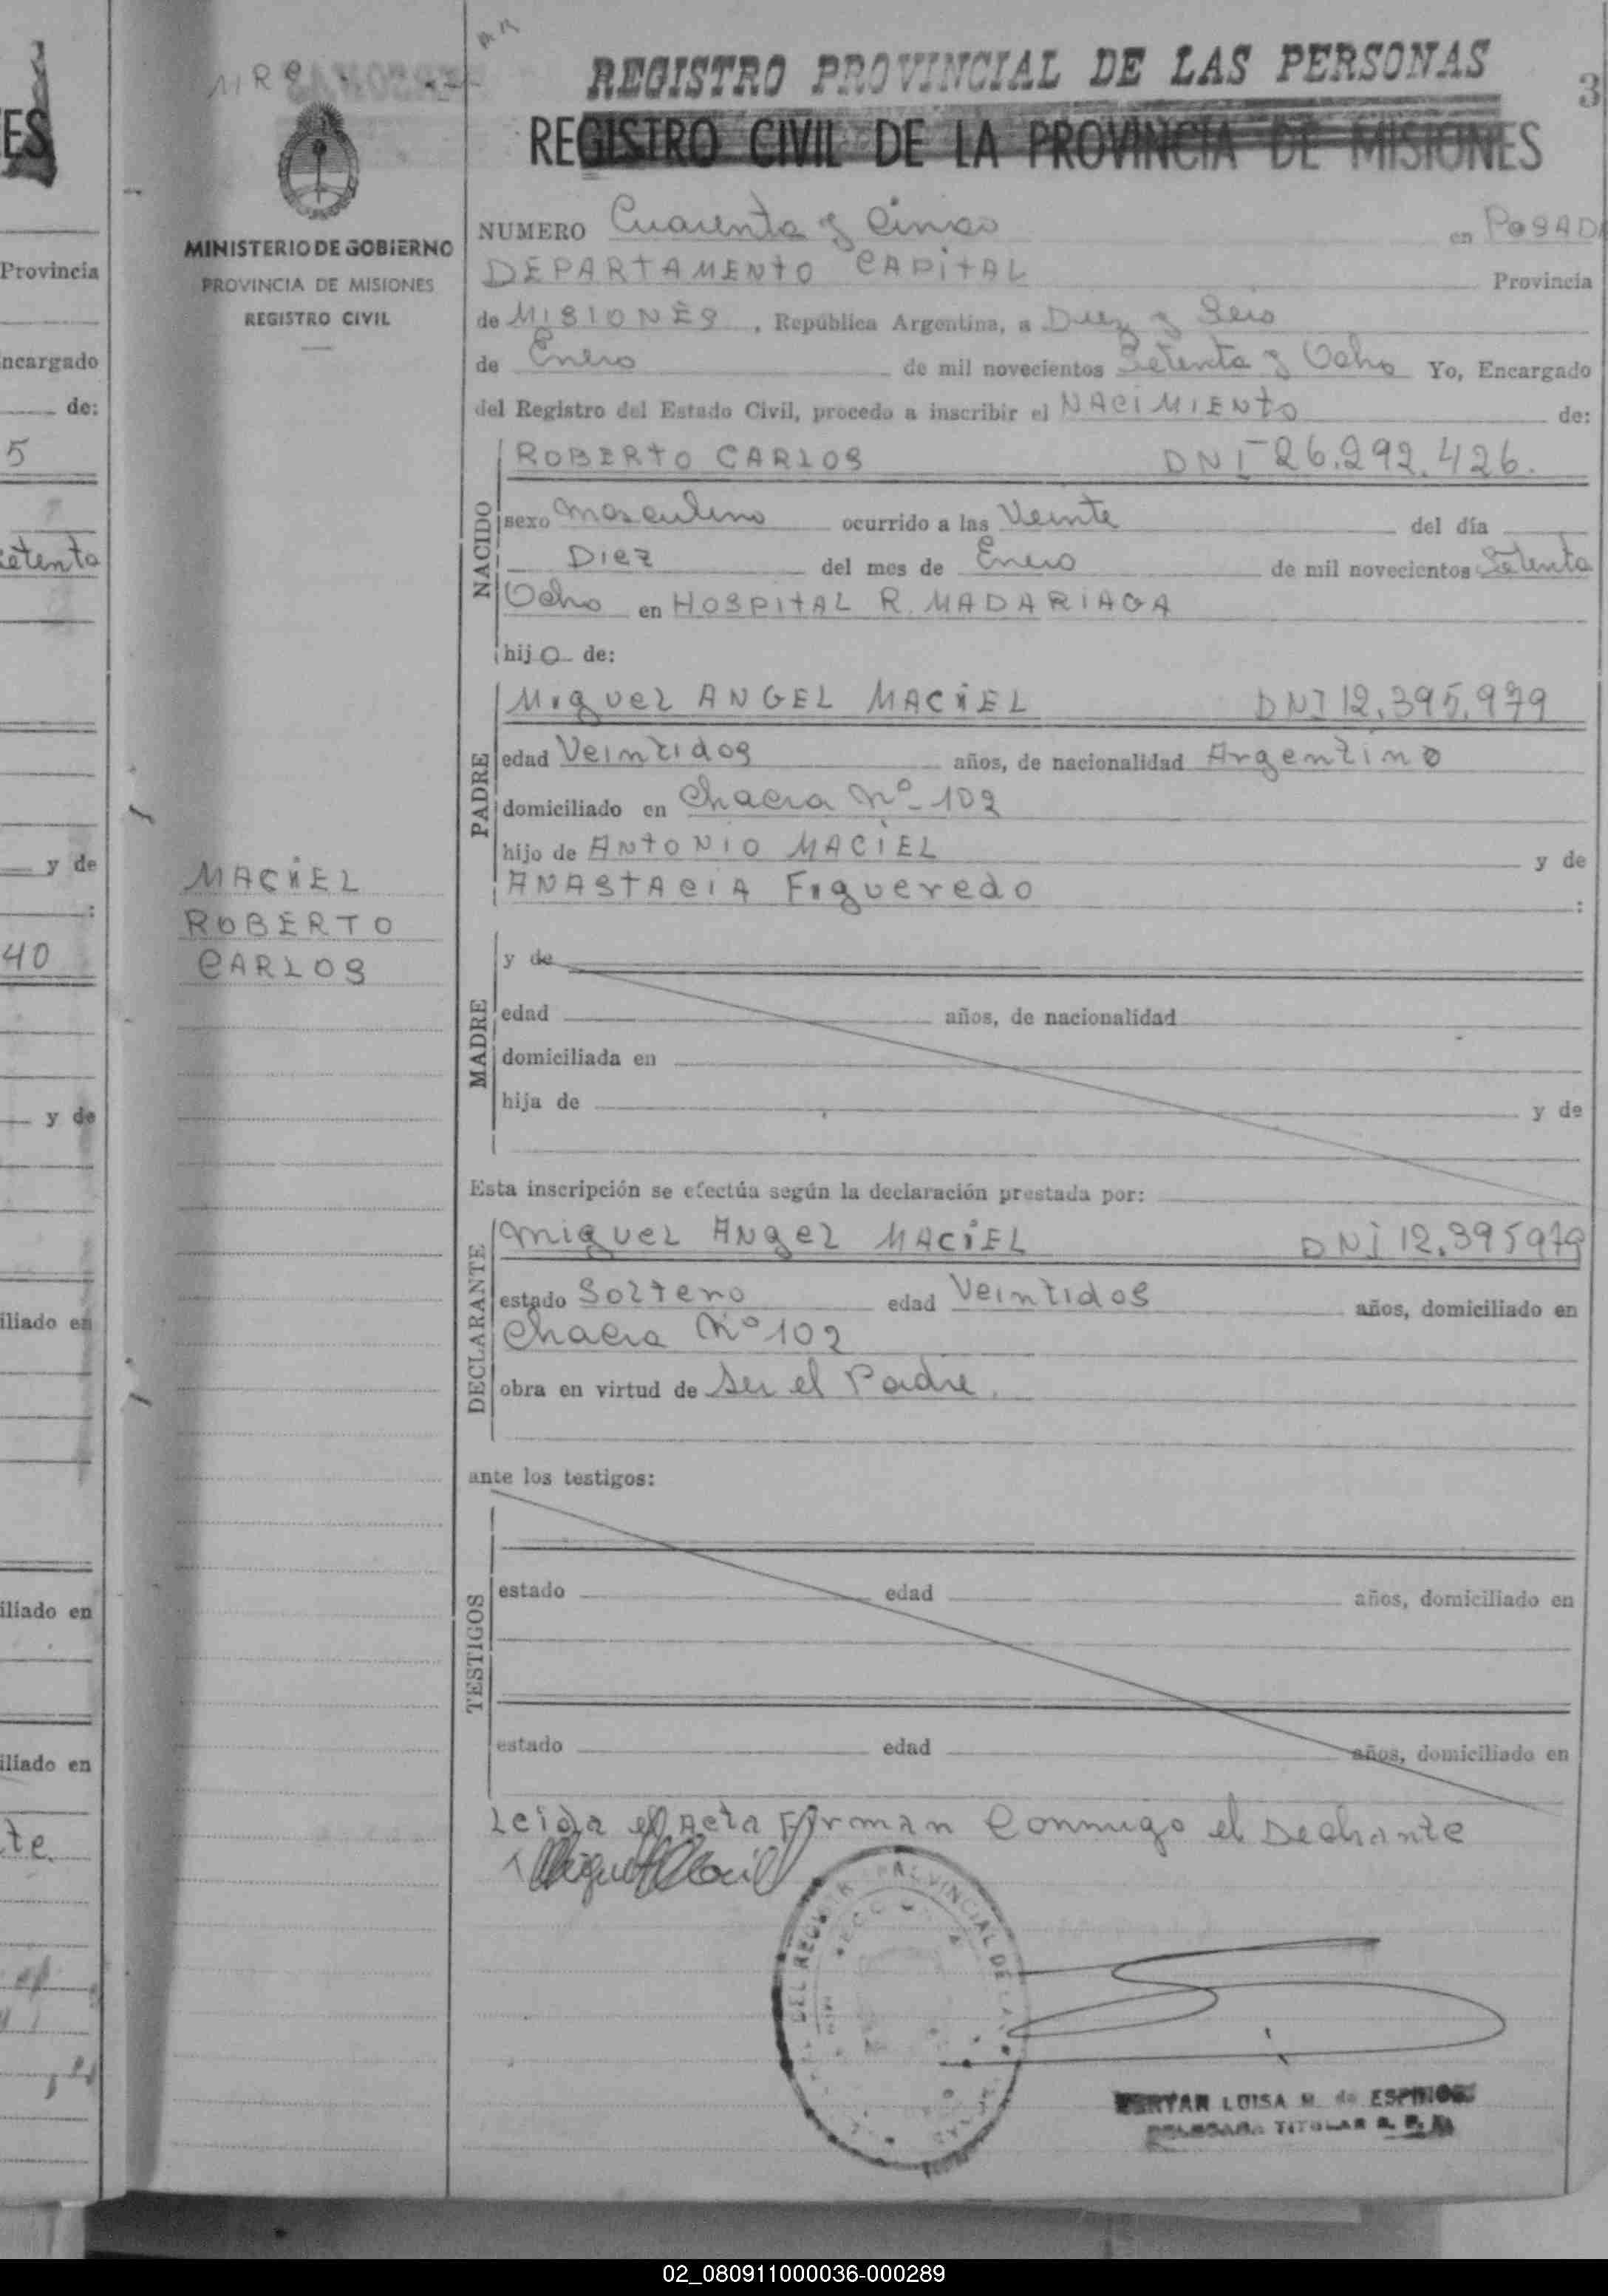 REGISTRO PROVINCIAL DE LAS PERSONAS
3
REGISTRO CIVIL DE LA PROVINCIA DE MISIONES
ES
MINISTERIO DE GOBIERNO
PROVINCIA DE MISIONES
REGISTRO CIVIL
NUMERO Cuarenta y Cinco en POSAD
DEPARTAMENTO CAPITAL Provincia
de MISIONES, República Argentina, a Diez y Seis
de Enero de mil novecientos Setenta y Ocho Yo, Encargado
del Registro del Estado Civil, procedo a inscribir el NACIMIENTO de:
NACIDO
ROBERTO CARLOS DNI 26.292.426.
sexo Masculino ocurrido a las Veinte del día
Diez del mes de Enero de mil novecientos Setenta
Ocho en HOSPITAL R. MADARIAGA
hijo de:
PADRE
Miguel ANGEL MACIEL DNI 12.395.979
edad Veintidos años, de nacionalidad Argentino
domiciliado en Chacra Nº 102
hijo de ANTONIO MACIEL y de
ANASTACIA Figueredo :
MACIEL
ROBERTO
CARLOS
MADRE
y de
edad años, de nacionalidad
domiciliada en
hija de y de
Esta inscripción se efectúa según la declaración prestada por:
DECLARANTE
Miguel Angel MACIEL DNI 12.395979
estado Soltero edad Veintidos años, domiciliado en
Chacra Nº 102
obra en virtud de Ser el Padre.
ante los testigos:
TESTIGOS
estado edad años, domiciliado en
estado edad años, domiciliado en
Leida el Acta Firman Conmigo el Declrante
LUISA M. de ESPINOZA
TITULAR
Provincia
ncargado
de:
5
etenta
y de
:
40
y de
iliado en
iliado en
iliado en
te.
02_080911000036-000289